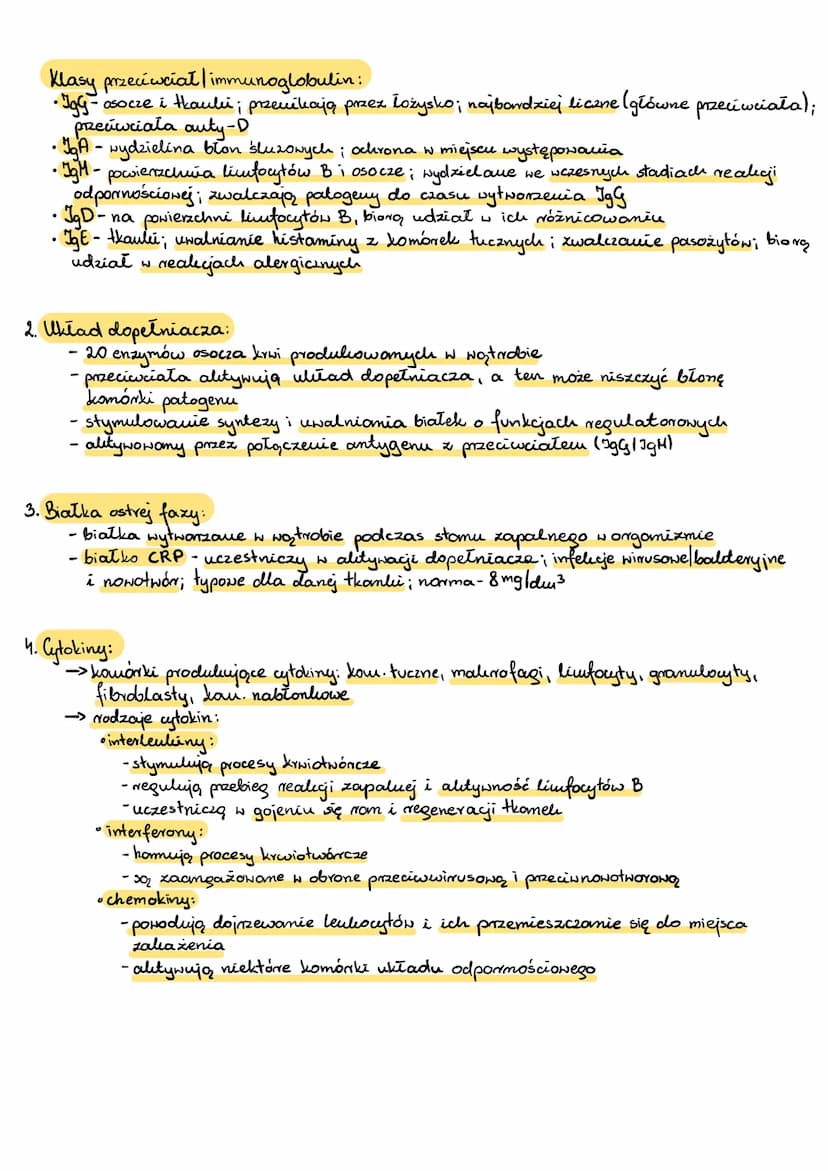 Klasy przeciwciał/immunoglobulin:
• IgG - osocze i tkanki; przenikają przez łożysko; najbardziej liczne (główne przeciwciała);
przeciwciała anty-D
• IgA - wydzielina błon śluzowych; ochrona w miejscu występowania
• IgM - powierzchnia limfocytów B i osocze; wydzielane we wczesnych stadiach reakcji
odpornościowej; zwalczają patogeny do czasu wytworzenia IgG
• IgD - na powierzchni limfocytów B, biorą udział w ich różnicowaniu
• IgE - tkanki; uwalnianie histaminy z komórek tucznych; zwalczanie pasożytów; biorą
udział w reakcjach alergicznych
2. Układ dopełniacza:
- 20 enzymów osocza krwi produkowanych w wątrobie
- przeciwciała aktywują układ dopełniacza, a ten może niszczyć błonę
komórki patogenu
- stymulowanie syntezy i uwalniania białek o funkcjach regulatorowych
- aktywowany przez połączenie antygenu z przeciwciałem (IgG/IgM)
3. Białka ostrej fazy:
- białka wytwarzane w wątrobie podczas stanu zapalnego w organizmie
- białko CRP - uczestniczy w aktywacji dopełniacza; infekcje wirusowe/bakteryjne
i nowotwór; typowe dla danej tkanki; norma - 8 mg/dm³
4. Cytokiny:
→ komórki produkujące cytokiny: kom. tuczne, makrofagi, limfocyty, granulocyty,
fibroblasty, kom. nabłonkowe
→ rodzaje cytokin:
• interleukiny:
- stymulują procesy krwiotwórcze
- regulują przebieg reakcji zapalnej i aktywność limfocytów B
- uczestniczą w gojeniu się ran i regeneracji tkanek
• interferony:
- hamują procesy krwiotwórcze
- są zaangażowane w obronę przeciwwirusową i przeciwnowotworową
• chemokiny:
- powodują dojrzewanie leukocytów i ich przemieszczanie się do miejsca
zakażenia
- aktywują niektóre komórki układu odpornościowego